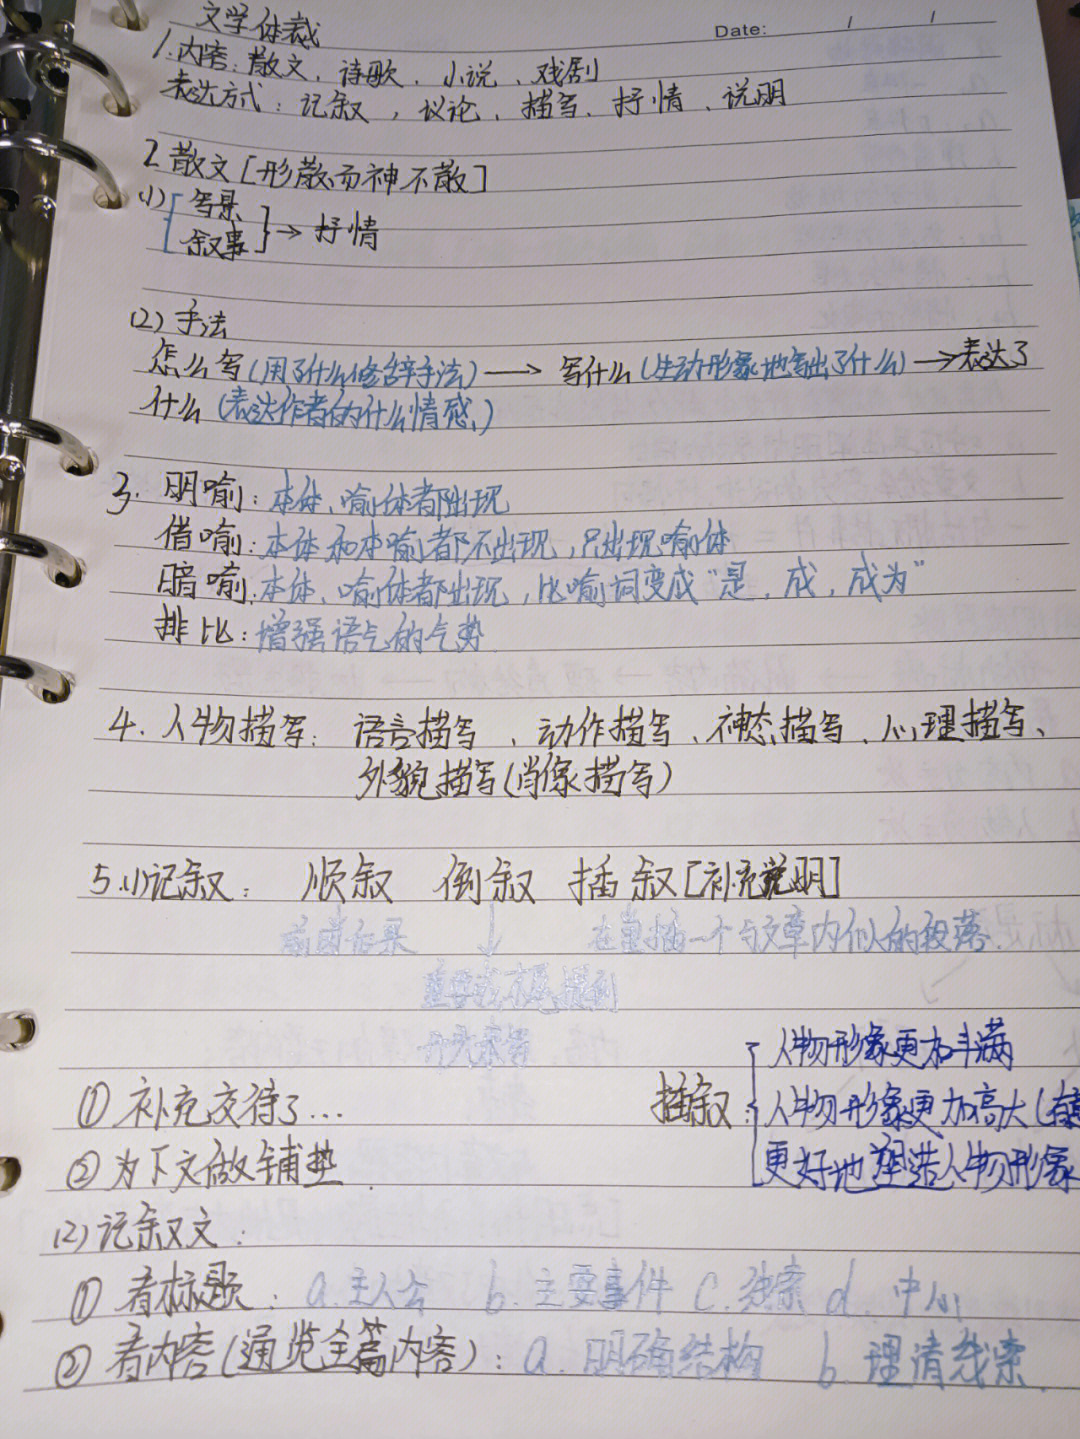 文学体裁
Date: / /
1.内容：散文、诗歌、小说、戏剧
表达方式：记叙，议论、描写、抒情、说明
2 散文[形散而神不散]
(1) 写景
叙事 → 抒情
(2) 手法
怎么写(用了什么修辞手法) → 写什么(生动形象地写出了什么) → 表达了
什么(表达作者的什么情感)
3. 明喻：本体、喻体都出现
借喻：本体和本喻都不出现，只出现喻体
暗喻：本体、喻体都出现，比喻词变成"是，成，成为"
排比：增强语气的气势
4. 人物描写：语言描写、动作描写、神态描写、心理描写、
外貌描写(肖像描写)
5.(1)记叙：顺叙 倒叙 插叙[补充说明]
插一个与文章内似的段落
开头
① 补充交待了...
② 为下文做铺垫
插叙：人物形象更加丰满
人物形象更加高大(
更好地塑造人物形象
(2)记叙文：
① 看标题：a.主人公 b.主要事件 c.线索 d.中心
② 看内容(通览全篇内容)：a.明确结构 b.理清线索